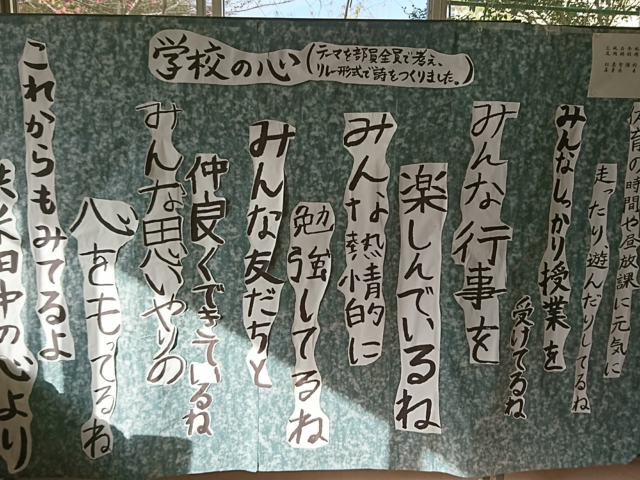 学校の心(テーマを部員全員で考え、
リレー形式で詩をつくりました。)
の時間や昼放課に元気に
走ったり、遊んだりしてるね
みんなしっかり授業を
受けてるね
みんな行事を
楽しんでいるね
みんな熱情的に
勉強してるね
みんな友だちと
仲良くできているね
みんな思いやりの
心をもってるね
これからもみてるよ
田中の心より